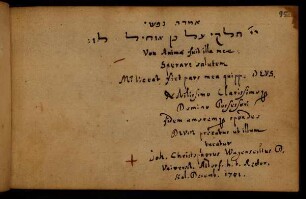 אמרה נפשי
יי חלקי על כן אוחיל לו:
Non Anima fuit illa mea
Servare salutem
Mi liceat fiet pars mea quippe DEUS.
Nobilissimo Clarissimoque
Domino Possessori
fidem amoremque spondet
Deum precatus ut illum
tueatur
Joh. Christophorus Wagenseilius D.
Universit. Altorf. h. t. Rector.
Decemb.